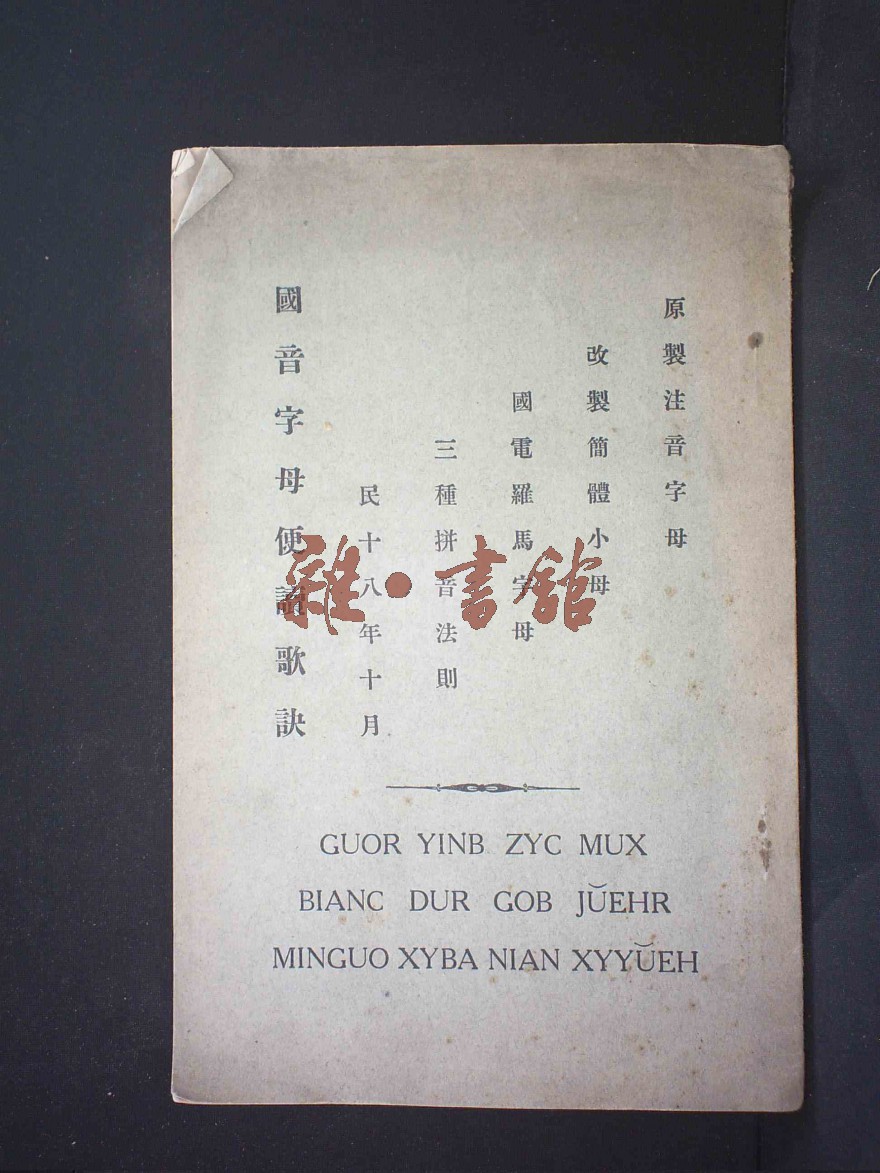 原製注音字母
改製簡體小母
國電羅馬字母
三種拼音法則
民十八年十月
國音字母便讀歌訣
雜·書館
GUOR YINB ZYC MUX
BIANC DUR GOB JŬEHR
MINGUO XYBA NIAN XYYŬEH